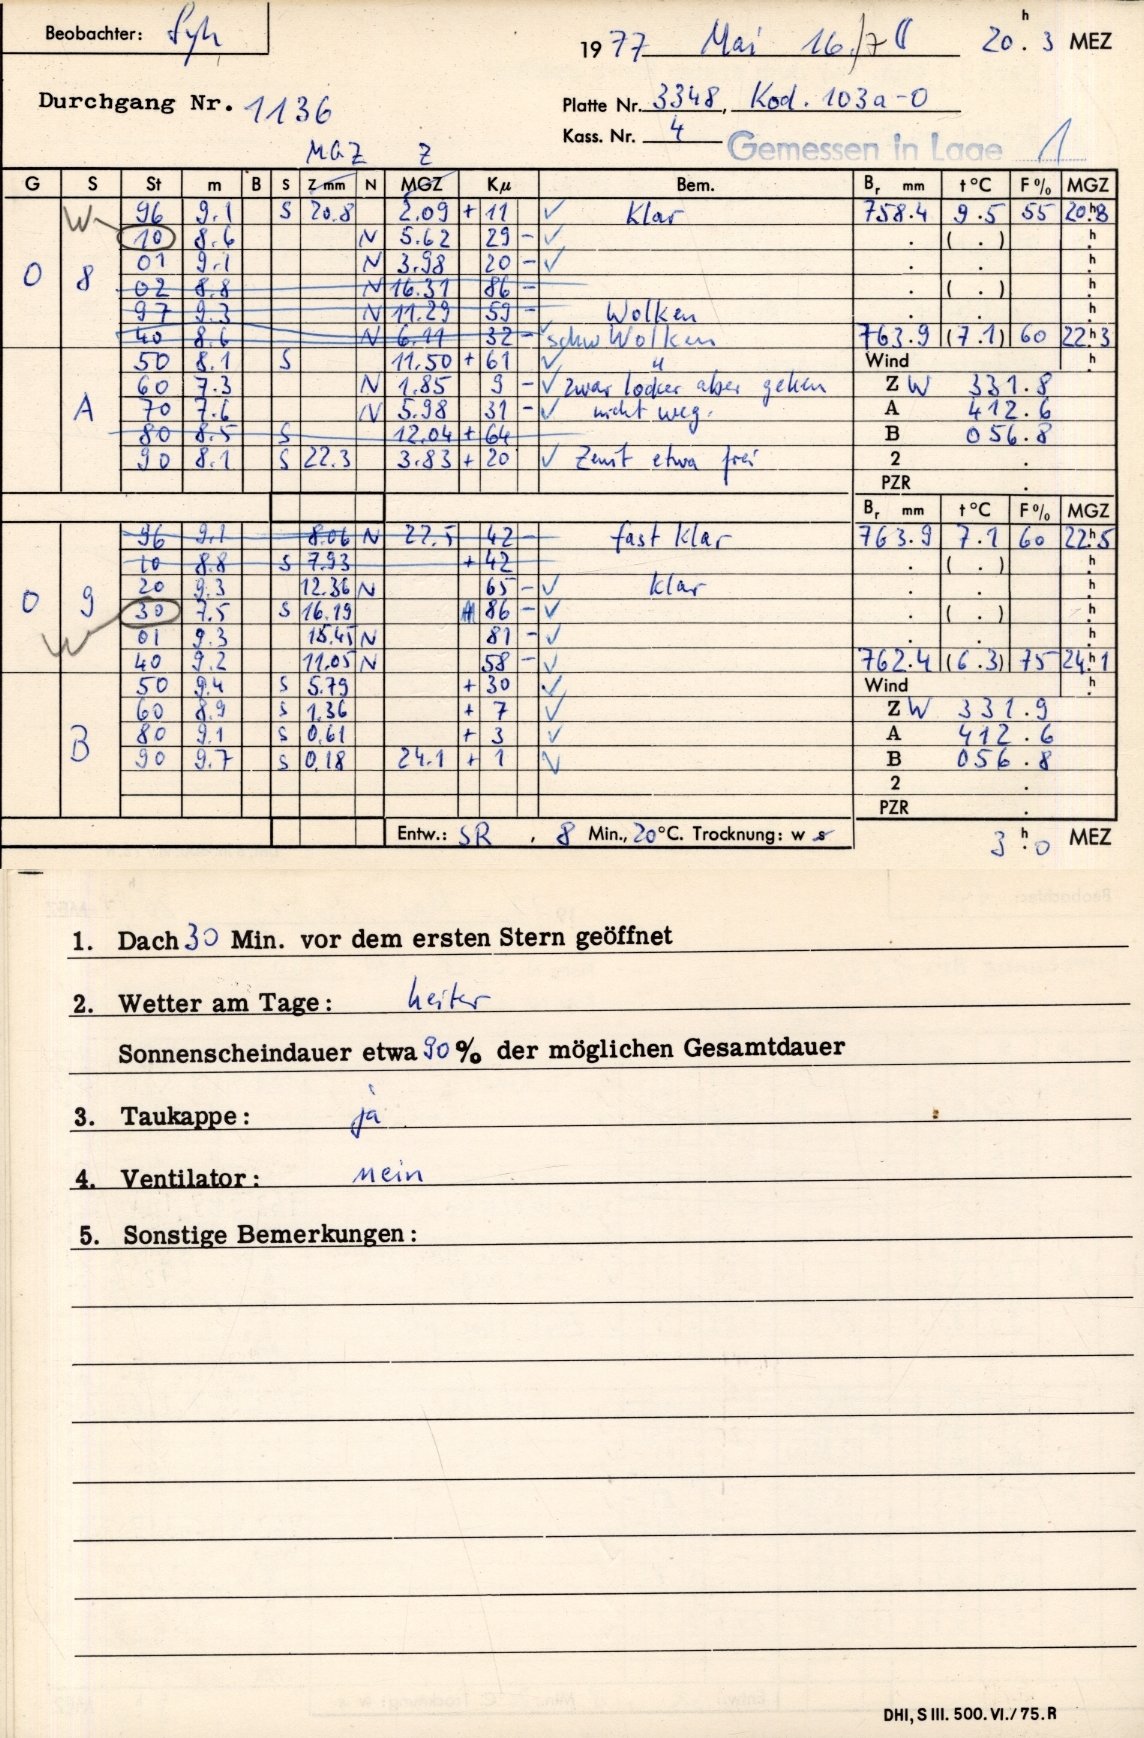 Beobachter: Syh
1977 Mai 16./78 20h.3 MEZ
Durchgang Nr. 1136
Platte Nr. 3348, Kod. 103a-O
Kass. Nr. 4 Gemessen in Lage 1
MGZ Z
G S St m B S Z mm N MGZ Kμ Bem. Br mm t°C F% MGZ
W 96 9.1 S 20.8 2.09 + 11 ✓ Klar 758.4 9.5 55 20h.8
10 8.6 N 5.62 29 - ✓ . ( . ) h.
0 8 01 9.1 N 3.98 20 - ✓ . . h.
02 8.8 N 16.31 86 - . ( . ) h.
97 9.3 N 11.29 59 - Wolken . . h.
40 8.6 N 6.11 32 - schw Wolken 763.9 (7.1) 60 22h.3
50 8.1 S 11.50 + 61 ✓ " Wind h.
60 7.3 N 1.85 9 - ✓ zwar locker aber gehen Z W 331.8
A 70 7.6 N 5.98 31 - ✓ nicht weg. A 412.6
80 8.5 S 12.04 + 64 B 056.8
90 8.1 S 22.3 3.83 + 20 ✓ Zenit etwa frei 2 .
PZR .
Br mm t°C F% MGZ
96 9.1 8.06 N 22.5 42 - fast klar 763.9 7.1 60 22h.5
10 8.8 S 7.93 + 42 . ( . ) h.
20 9.3 12.36 N 65 - ✓ klar . . h.
0 9 30 7.5 S 16.19 86 - ✓ . ( . ) h.
W 01 9.3 15.45 N 81 - ✓ . . h.
40 9.2 11.05 N 58 - ✓ 762.4 (6.3) 75 24h.1
50 9.4 S 5.79 + 30 ✓ Wind h.
60 8.9 S 1.36 + 7 ✓ Z W 331.9
B 80 9.1 S 0.61 + 3 ✓ A 412.6
90 9.7 S 0.18 24.1 + 1 ✓ B 056.8
2 .
PZR .
Entw.: SR , 8 Min., 20°C. Trocknung: w s
3h.0 MEZ
1. Dach 30 Min. vor dem ersten Stern geöffnet
2. Wetter am Tage: heiter
Sonnenscheindauer etwa 90% der möglichen Gesamtdauer
3. Taukappe: ja
4. Ventilator: nein
5. Sonstige Bemerkungen:
DHI, S III. 500. VI./75. R